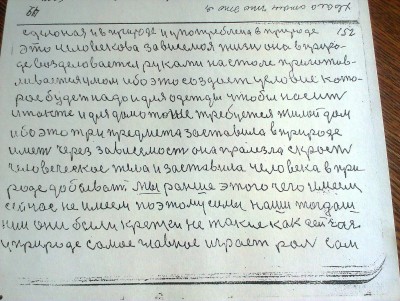 сделоная и в природе и употреблена в природе 152
это человекова зависемоя жизн она в приро-
де возделоваетса руками на столе приготов-
ливаетса умом ибо это создает условие кото-
рое будет надо и для одежды чтобы насит
и такте и для дама тоже требуетса жилой дом
ибо это три предмета заставила в природе
имет через зависемост она пролезла скрозь
человеческое тела и заставила человека в при-
роде добыват мы ранше этого чего имеем
сейчас не имеем поэтому силы наши тогдаш
нии они были крепки не такие как сейчас
и природе самое главное играет рол сам